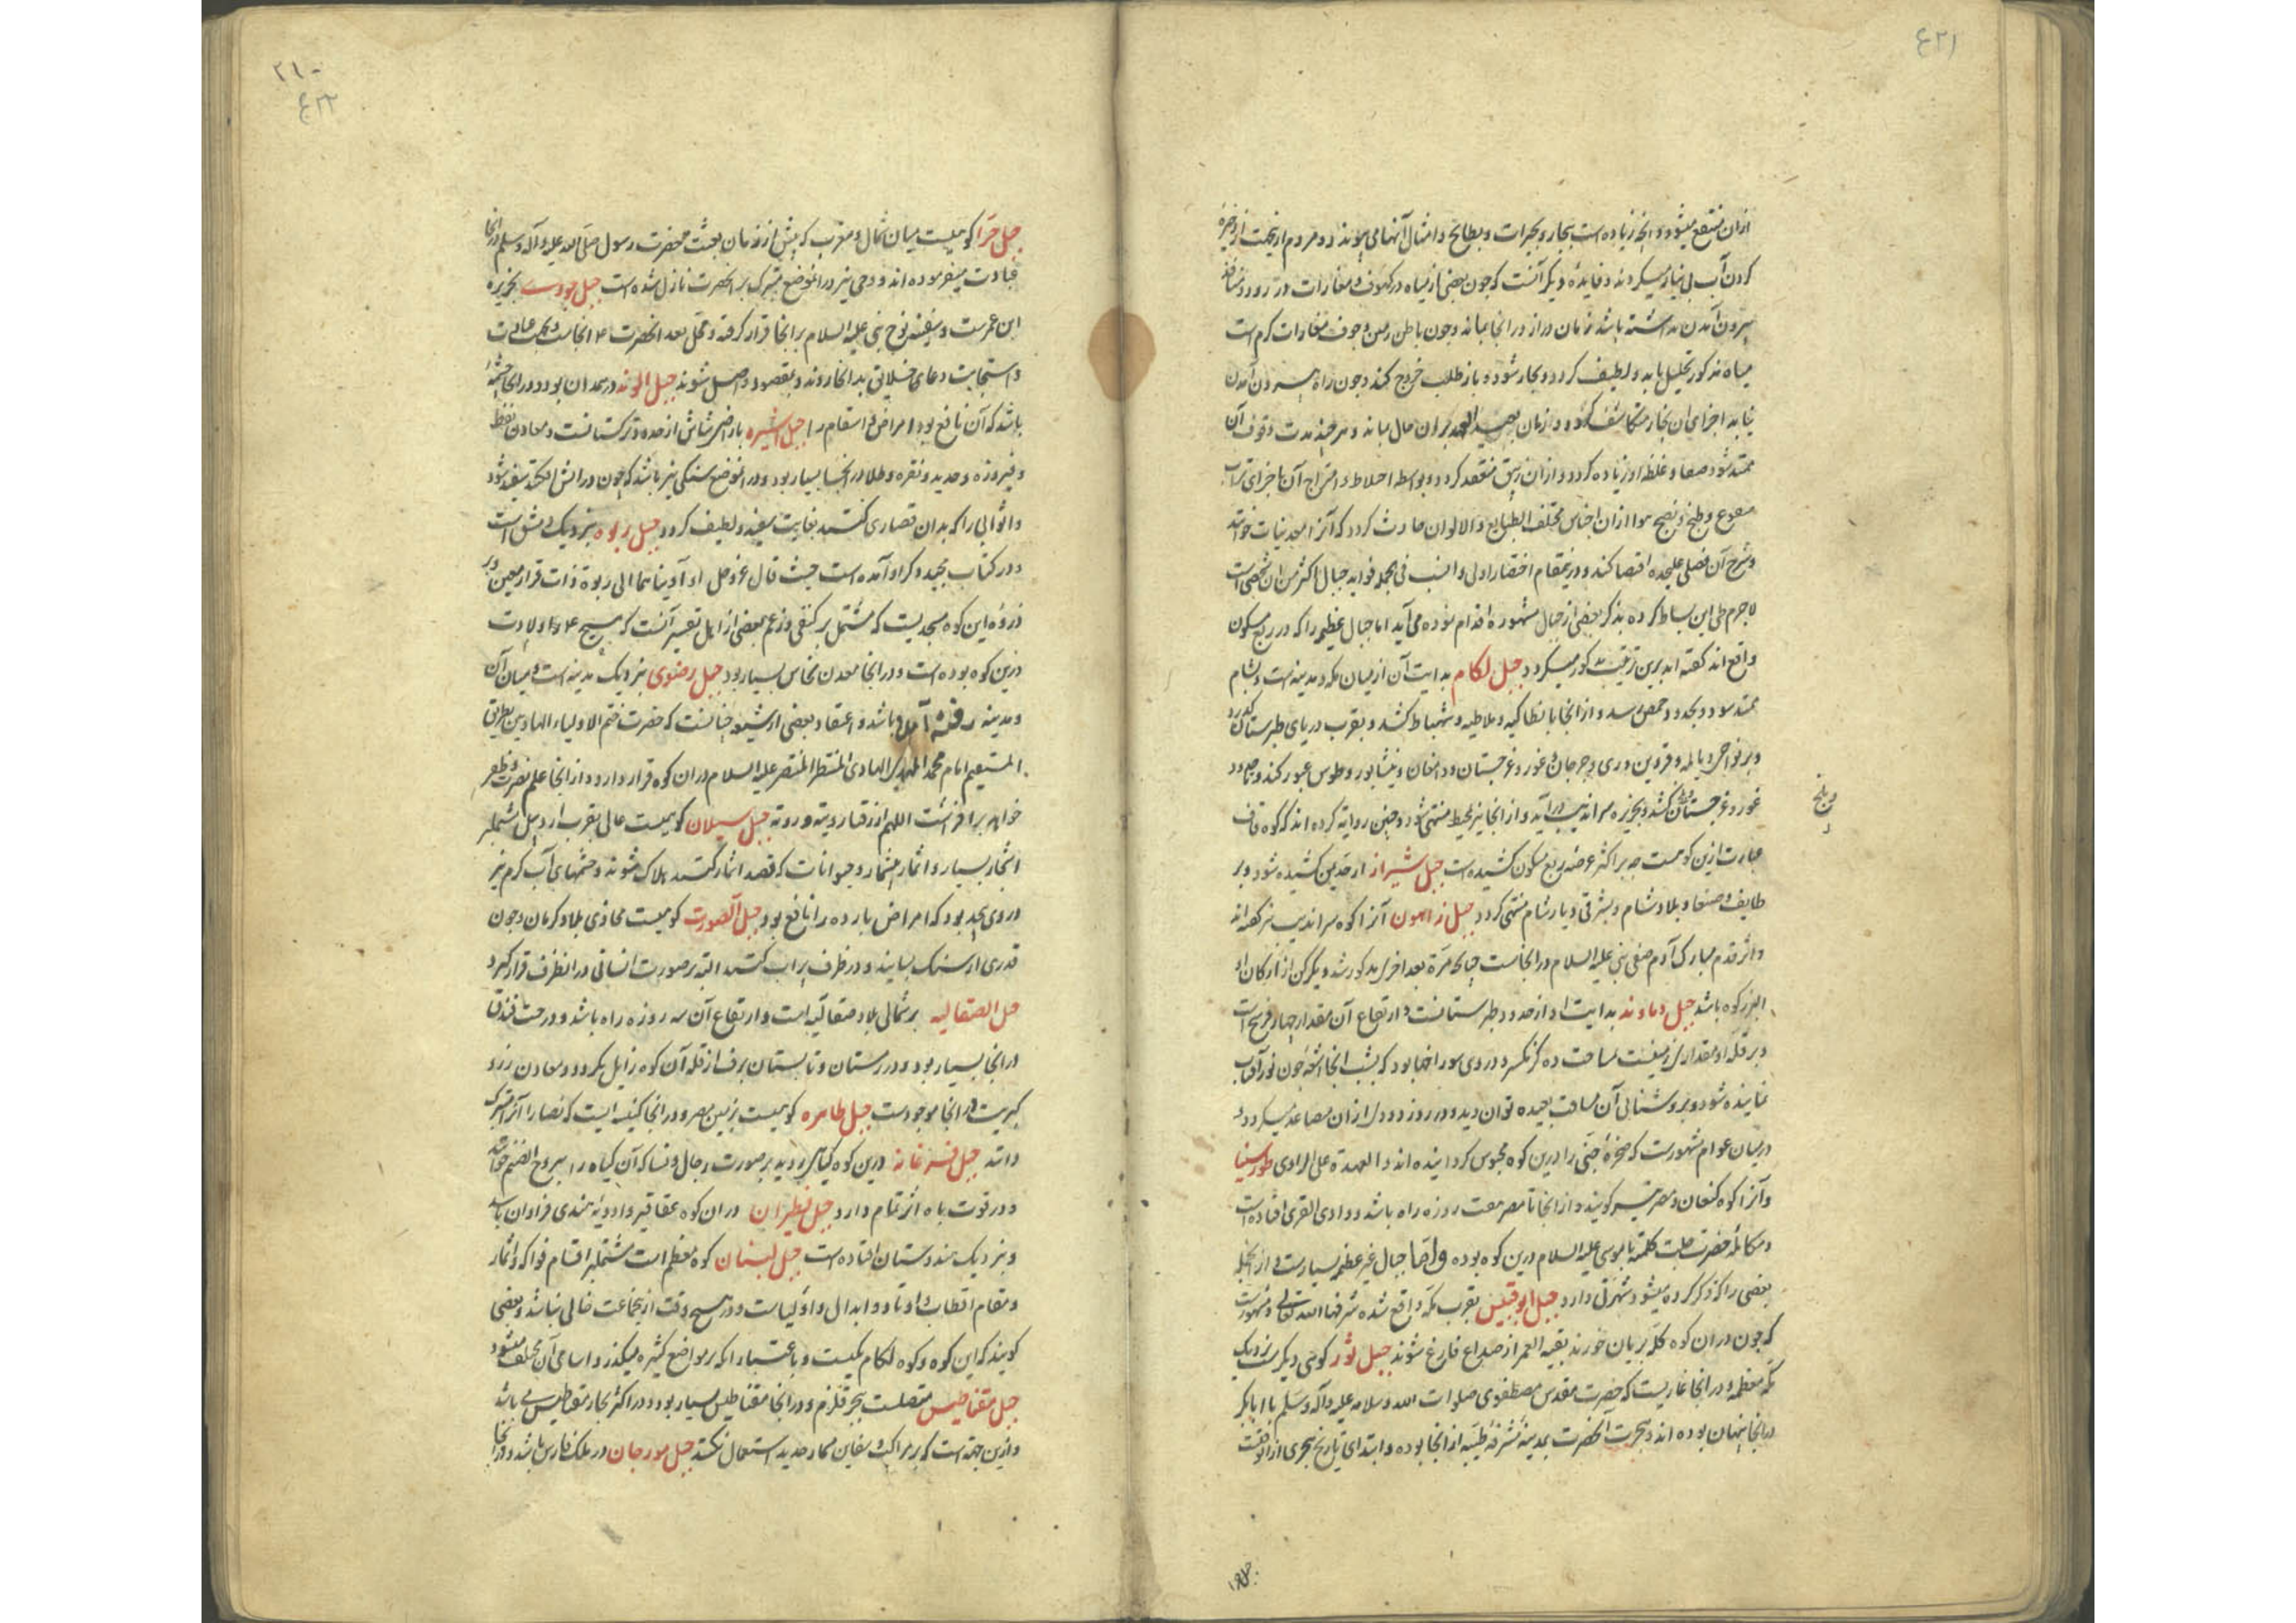 ۴۲۱
ازان منتفع میشود و انچه زیاده است بحار و بحیرات و بطایح و امثال آنها می پیوندد و مردم از جهت ذخیره
کردن آب بی نیاز میکردند و فایدهٔ دیکر آنست که چون بعضی از میاه در کهوف و مغارات در رود و منافذ
بیرون آمدن نداشته باشد زمان دراز در انجا بماند و چون باطن زمین و جوف مغارات کرم است
میاه مذکور تحلیل یابد و لطیف کردد و بخار شود و باز طلب خروج کند و چون راه بیرون آمدن
نیابد اجزای ان بخار متکاثف کردد و زمان بعید العهد بران حال بماند و هر چند مدت وقوف آن
ممتد شود صفا و غلظ او زیاده کردد و ازان زیبق منعقد کردد و بواسطه اختلاط و امتزاج آن باجزای تراب
و طبخ و نضج هوا ازان اجناس مختلف الطبایع و الالوان حادث کردد که آنرا معدنیات خوانند
و شرح آن فصلی علیحده اقتضا کند و درینمقام اختصار اولی و انسب فی الجمله فواید جبال اکثر من ان تحصی است
لاجرم طی این بساط کرده بذکر بعضی از جبال مشهوره اقدام نموده می آید اما جبال عظیم را که در ربع مسکون
واقع اند کفته اند برین ترتیب مذکور میکردد جبل لکام بدایت آن از میان مکه و مدینه است و بشام
ممتد شود و بحدود حمص رسد و از انجا بانطاکیه و ملاطیه و شمباط کشد و بقرب دریای طبرستان کذرد
و بر نواحی دیالمه و قزوین و ری و جرجان و غور و غرجستان و دامغان و نیشابور و طوس عبور کند و تا حدود
غور و غرجستان کشد و بجزیره سراندیب درآید و از انجا نیز بمحیط منتهی شود و چنین روایة کرده اند که کوه قاف
و بلخ
عبارت ازین کوهست چه بر اکثر عرصهٔ ربع مسکون کشیده است جبل شیراز از حد یمن کشیده شود و بر
طایف و صنعا و بلاد شام و بشرقی دیار شام منتهی کردد جبل زاهون آنرا کوه سراندیب نیز کفته اند
و اثر قدم مبارک آدم صفی نبی علیه السلام در انجاست چنانچه مرة بعد اخری مذکور شد و یکرکن از ارکان او
البرز کوه باشد جبل دماوند بدایت او از حدود طبرستانست و ارتفاع آن مقدار چهار فرسخ است
و بر قله او مقدار زمینست بمسافت ده کز مکسر و دروی سوراخها بود که بشب انجا اشعه چون نور آفتاب
نماینده شود و بروشنائی آن مسافت بعیده توان دید و در روز دودی ازان مصاعد میکردد و
درمیان عوام مشهورست که صخرهٔ جنی را درین کوه محبوس کردانیده اند و العهدة علی الراوی طور سینا
و آنرا کوه کنعان و مصر نیز کویند و از انجا تا مصر هفت روزه راه باشد و وادی القری افتاده است
و مکالمهٔ حضرت جلت کلمته با موسی علیه السلام درین کوه بوده و اما جبال غیر عظیم بسیارست و از انجمله
بعضی را که ذکر کرده میشود شهرتی دارد جبل ابوقبیس بقرب مکه واقع شده شرفها الله تعالی و مشهورست
که چون دران کوه کلّه بریان خورند بقیه العمر از صداع فارغ شوند جبل ثور کوهی دیکرست نزدیک
مکه معظمه و در انجا غاریست که حضرت مقدس مصطفوی صلوات الله و سلامه علیه و آله و سلم با ابابکر
درانجا پنهان بوده اند و هجرت آنحضرت بمدینه مشرفه طیبه از انجا بوده و ابتدای تاریخ هجری از انوقت
جبل حرا
۲۱۰
۴۲۲
جبل حرا کوهیست میان شمال و مغرب که پیش از زمان بعثت محضرت رسول صلی الله علیه و آله و سلم در انجا
عبادت میفرموده اند و وحی نیز در انموضع متبرک بر آنحضرت نازل شده است جبل جودی بجزیره
ابن عمرست و سفینه نوح نبی علیه السلام بر انجا قرار کرفته و محل بعد انحضرت ع انجاست
و استجابت دعای خلایق بدانجا روند و بمقصود واصل شوند جبل الوند در همدان بود و در انجا چشمهٔ
باشد که آن نافع بود امراض و اسقام را جبل اشیره بارض شاش از حدود ترکستانست و معادن نفط
و فیروزه و حدید و نقره و طلا در انجا بسیار بود و در انموضع سنکی نیز باشد که چون در اتش افکنند سفید شود
و اثوابی را که بدان قصاری کنند بغایت سفید و لطیف کردد جبل ربوه بنزدیک دمشق است
و در کتاب مجید ذکر او آمده است حیث قال عز و جل او آویناهما الی ربوة ذات قرار و معین و بر
ذروهٔ این کوه مسجدیست که مشتمل بر کنفی و زعم بعضی از اهل تفسیر آنست که مسیح ع را ولادت
درین کوه بوده است و در انجا معدن نحاس بسیار بود جبل رضوی بنزدیک مدینه است و میان آن
و مدینه باشد و اعتقاد بعضی از شیعه چنانست که حضرت ختم الاولیاء الهادیین بطریق
المستقیم امام محمد المهدی الهادی المنتظر المنتصر علیه السلام دران کوه قرار دارد و از انجا علم نصرت و ظفر
خواهد برافراشت اللهم ارزقنا رویته و رویة جبل سبلان کوهیست عالی بقرب اردبیل مشتمل بر
اشجار بسیار و اثمار بیشمار و حیوانات که قصد اثمار کنند هلاک شوند و چشمهای آب کرم نیز
دروی بود که امراض بارده را نافع بود جبل الصورت کوهیست محاذی بلاد کرمان و چون
قدری از سنک بسایند و در ظرف پر آب کنند البته بر صورت انسانی در انظرف قرار کیرد
جبل الصقالیه بر شمالی بلاد صقالیه است و ارتفاع آن سه روزه راه باشد و درخت فندق
در انجا بسیار بود و در زمستان و تابستان برف از قله آن کوه زایل نکردد و معادن زر و
کبریت در انجا موجودست جبل طاهره کوهیست بزمین مصر و در انجا کنیسه ایست که نصارا آنرا متبرک
دانند جبل فرغانه درین کوه کیاهی روید بر صورت رجال و نسا که آن کیاه را یبروح الصنم خوانند
و در قوت باه اثر تمام دارد جبل نطیران دران کوه عقاقیر و ادویهٔ هندی فراوان باشد
و بنزدیک هندوستان افتاده است جبل لبنان کوه معظم است مشتمل بر اقسام فواکه و اثمار
و مقام اقطاب و اوتاد و ابدال و اولیاست و در هیچ وقت از جماعت خالی نباشد و بعضی
کویند که این کوه و کوه لکام یکیست و باعتبار انکه بر مواضع کثیره میکذرد اسامی آن مختلف میشود
جبل مقناطیس متصلست ببحر قلزم و در انجا مقناطیس بسیار بود و در اکثر بحار مقناطیس می باشد
و ازین جهة است که بر مراکب و سفاین مسمار حدید استعمال نکنند جبل مورجان در ملک فارس باشد و در انجا